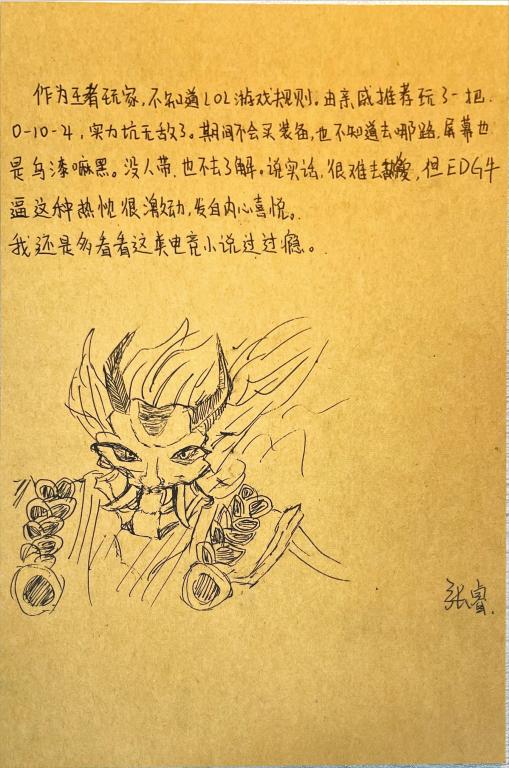 作为王者玩家，不知道LOL游戏规则。由亲戚推荐玩了一把.
0-10-4，实力坑无敌了。期间不会买装备，也不知道去哪路，屏幕也
是乌漆嘛黑。没人带，也不去了解。说实话，很难去，但EDG牛
逼这种热忱很激动，发自内心喜悦。
我还是多看看这类电竞小说过过瘾。
张睿.